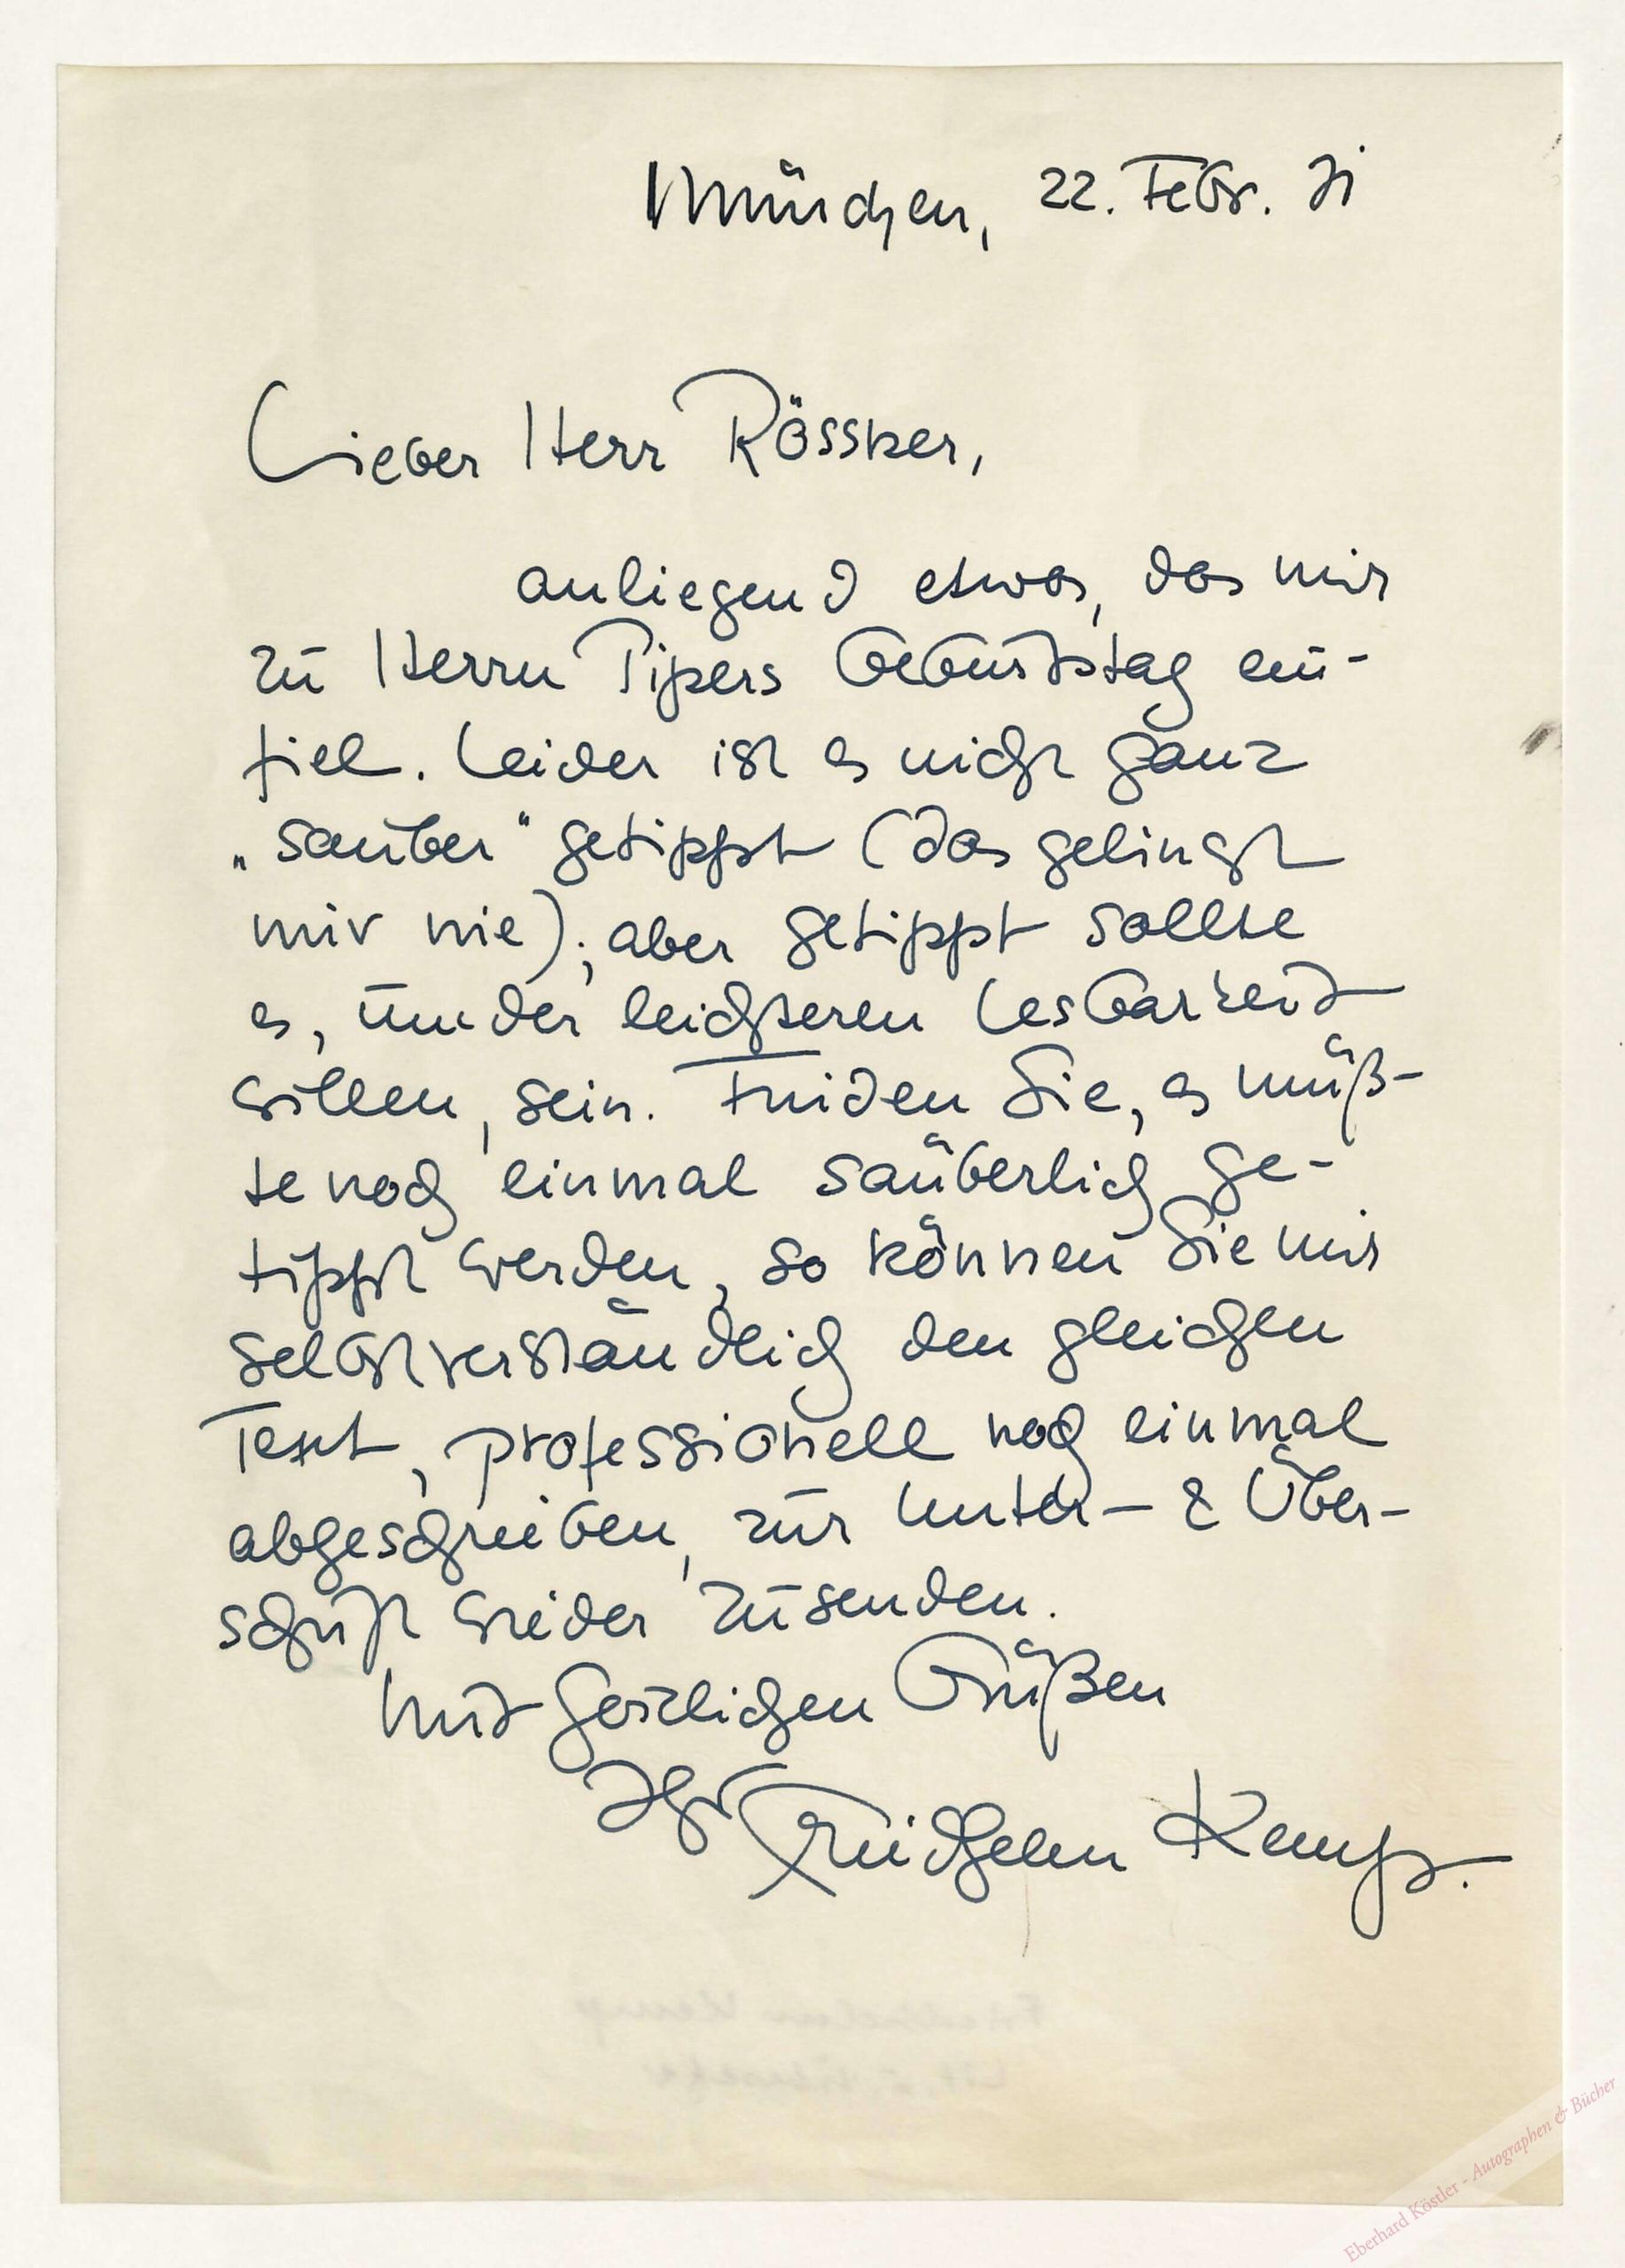 München, 22. Febr. 71
Lieber Herr Rössner,
anliegend etwas, das mir
zu Herrn Pipers Geburtstag ein-
fiel. Leider ist es nicht ganz
„sauber“ getippt (das gelingt
mir nie); aber getippt sollte
es, um der leichteren Lesbarkeit
willen, sein. Finden Sie, es müß-
te noch einmal säuberlich ge-
tippt werden, so können Sie mir
selbstverständlich den gleichen
Text, professionell noch einmal
abgeschrieben, zur Unter- & Über-
schrift wieder zusenden.
Mit herzlichen Grüßen
Ihr Friedhelm Kemp.
Eberhard Köstler - Autographen & Bücher